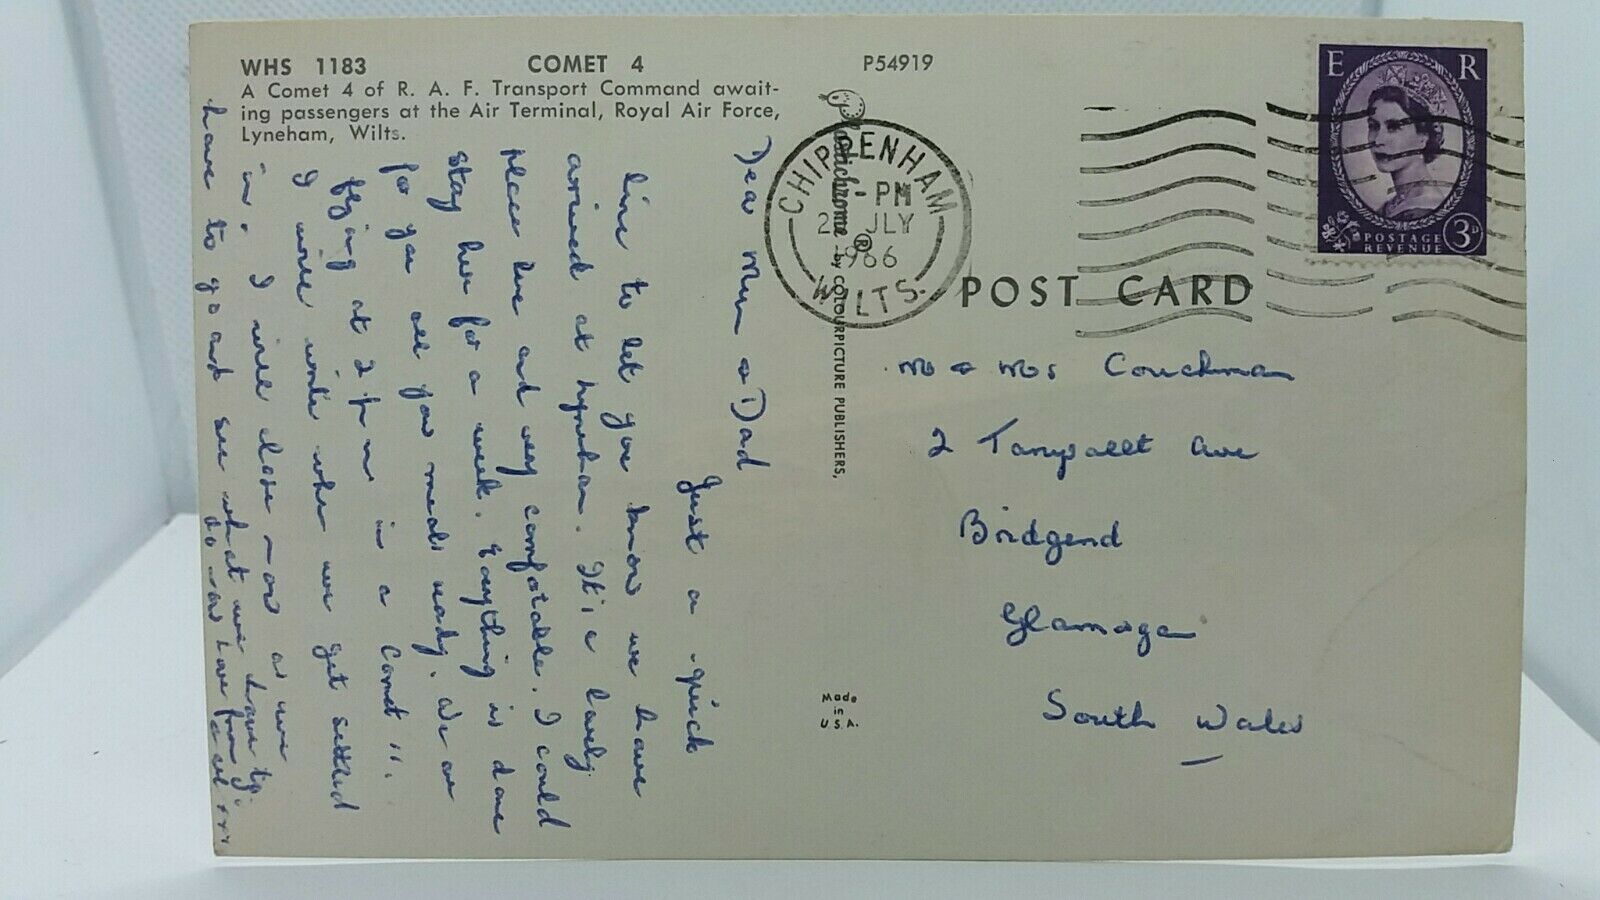 WHS 1183 COMET 4 P54919
A Comet 4 of R. A. F. Transport Command await-
ing passengers at the Air Terminal, Royal Air Force,
Lyneham, Wilts.
Dear Mum & Dad
Just a quick
line to let you know we have
arrived at Lyneham. It's a lovely
place here and very comfortable. I could
stay here for a week. Everything is done
for you all your meals ready. We are
flying at 2 pm in a Comet
I will write when we get settled
in. I will close now as we
have to go and see what we have to
do now Love from
Plastichrome ® by COLOURPICTURE PUBLISHERS,
CHIPPENHAM
PM
2 JLY
1966
WILTS.
E R
POSTAGE
REVENUE
3D
POST CARD
Mr & Mrs Couchman
2 Ave
Bridgend
South Wales
Made
in
U.S.A.